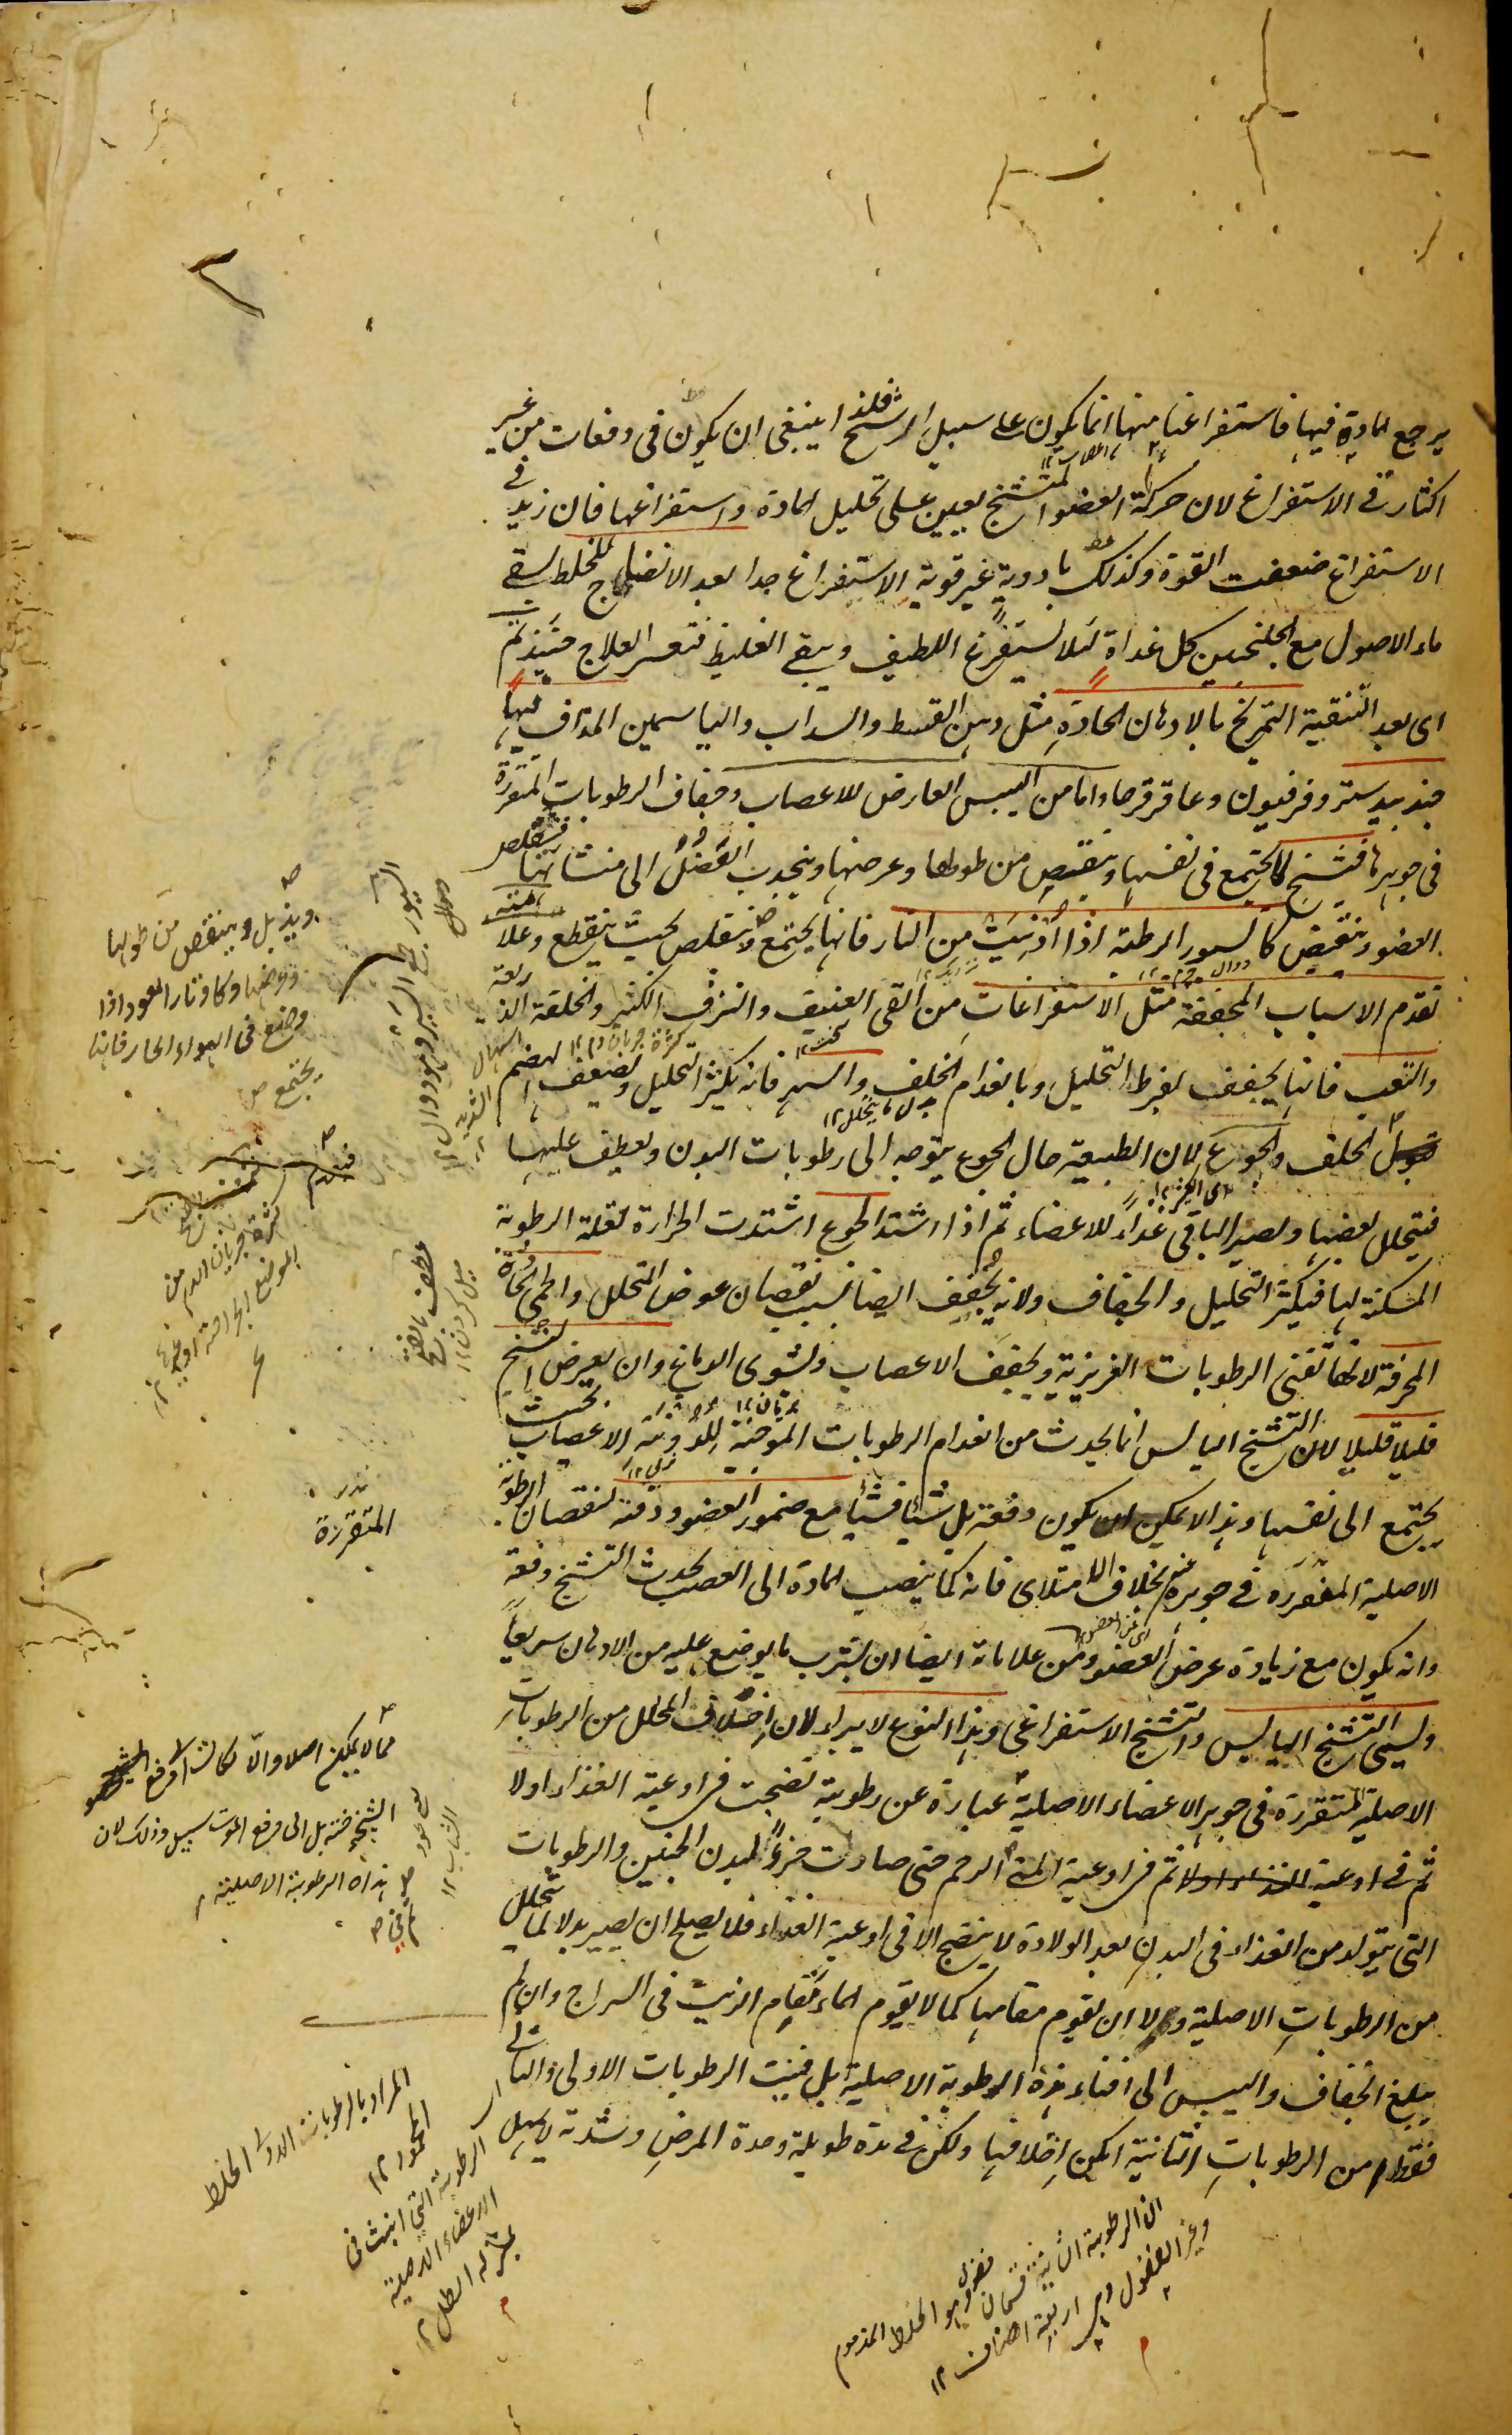 يرجع المادة فيها فاستفراغنا منها انما يكون على سبيل الرشح فلذا ينبغى ان يكون فى دفعات من غير
اكثار فى الاستفراغ لان حركة العضو المتشنج يعين على تحليل المادة واستفراغها فان زيد فى
الاستفراغ ضعفت القوة وكذلك بادوية غير قوية الاستفراغ جدا بعد الانضاج للخلط بسقى
ماء الاصول مع الجلنجبين كل غداة لئلا يستفرغ اللطيف ويبقى الغليظ فتعسر العلاج حينئذ ثم
اى بعد التنقية التمريخ بالادهان الحادة مثل دهن القسط والسداب والياسمين المداف فيها
جندبيدستر وفرفيون وعاقرقرحا واما من اليبس العارض للاعصاب وجفاف الرطوبات المتقررة
فى جوهرها فتشنج لما يجتمع فى نفسها وينقص من طولها وعرضها وينجذب العضل الى منشائها فيتقلص
العضو وينقبض كالسيور الرطبة اذا ادنيت من النار فانها يجتمع ويتقلص بحيث ينقطع وعلامته
تقدم الاسباب المجففة مثل الاستفراغات من القى العنيف والنزف الكثير والخلفة الذريعة
والتعب فانها يجفف بفرط التحليل وبانعدام الخلف والسهر فانه يكثر التحليل ويضعف الهضم
الخلف والجوع لان الطبيعة حال الجوع يتوجه الى رطوبات البدن ويعطف عليها
فيتحلل بعضها ويصير الباقى غذاء للاعضاء ثم اذا اشتد الجوع اشتدت الحرارة لقلة الرطوبة
المسكنة لها فيكثر التحليل والجفاف ولانه يجفف ايضا بسبب نقصان عوض المتحلل والحمى الحادة
المحرقة لانها تفنى الرطوبات الغريزية ويجفف الاعصاب ويشوى الدماغ وان يعرض التشنج
قليلا قليلا لان التشنج اليابس انما يحدث من انعدام الرطوبات الموجبة للدونة الاعصاب بحيث
يجتمع الى نفسها وهذا لا يمكن ان يكون دفعة بل شيئا فشيئا مع ضمور العضو ودقته لنقصان الرطوبة
الاصلية المتقررة فى جوهره بخلاف الامتلاى فانه كما ينصب المادة الى العصب يحدث التشنج دفعة
وانه يكون مع زيادة عرض العضو ومن علاماته ايضا ان يتشرب ما يوضع عليه من الادهان سريعا
ويسمى التشنج اليابس والتشنج الاستفراغى وهذا النوع لا يبراء لان اخلاف المحلل من الرطوبات
الاصلية المتقررة فى جوهر الاعضاء الاصلية عبارة عن رطوبة نضجت فى اوعية الغذاء اولا
ثم فى اوعية ثم فى اوعية الرحم حتى صارت جزءا لبدن الجنين والرطوبات
التى يتولد من الغذاء فى البدن بعد الولادة لا ينضج الا فى اوعية الغذاء فلا يصلح ان يصير بدلا لما يتحلل
من الرطوبات الاصلية ولا ان يقوم مقامها كما لا يقوم الماء مقام الزيت فى السراج وان لم
يبلغ الجفاف واليبس الى افناء هذه الرطوبة الاصلية بل فنيت الرطوبات الاولى والثانى
فقط من الرطوبات الثانية امكن اخلافها ولكن فى مدة طويلة وحدة المرض وشدته لا يمهل
ويذبل وينقص من طولها
وعرضها وكاوتار العود اذا
وضع فى الهواء الحار فانها
يجتمع
السيور جمع السير وهو دوال ١٢
كثرة جريان الدم من
الموضع
المتقررة
مما لا يمكن اصلا والا لكان
الشيخوخة بل الى دفع الموت سبيل وذلك لان
هذه الرطوبة الاصلية
المراد بالرطوبات الاولى الخلط
المحمود ١٢
الرطوبة التى انبثت فى
الاعضاء الاصلية
بمنزلة الطل ١٢
ان الرطوبة الثانية قسمان فضول وهو الخلط المذموم
وغير الفضول وهى اربعة اصناف ١٢